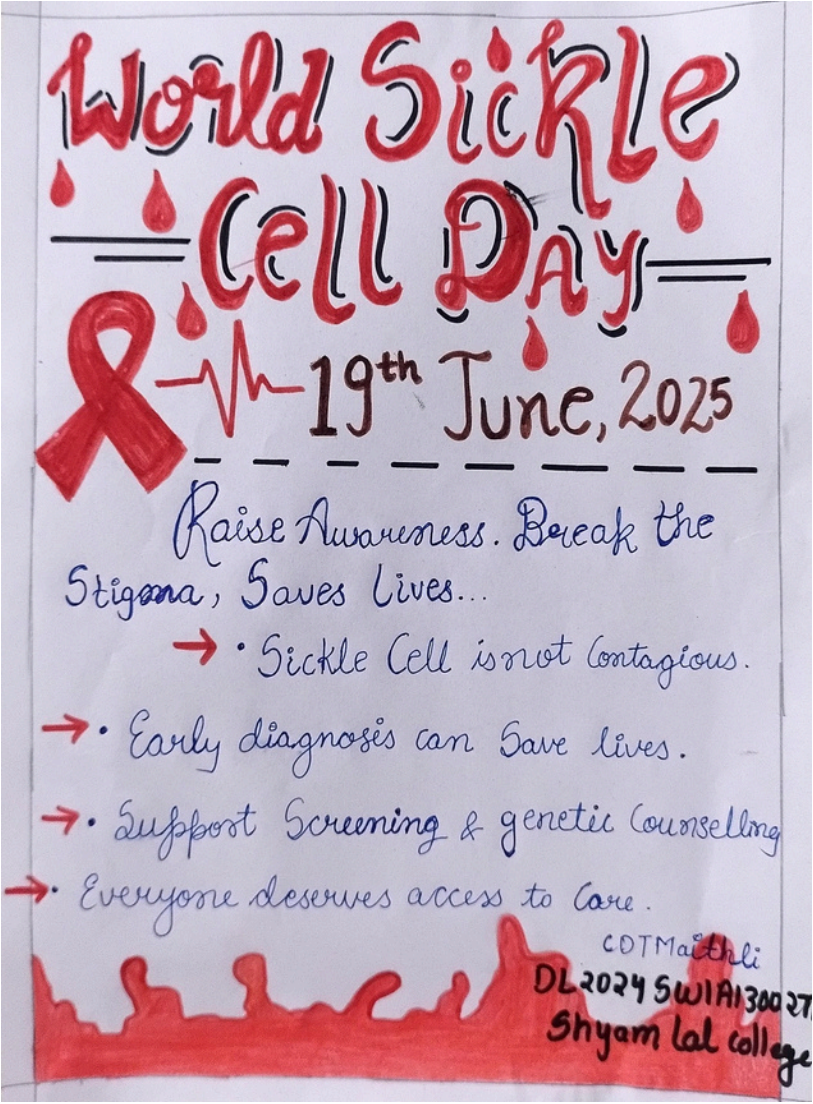 World Sickle
Cell Day
19th June, 2025
Raise Awareness. Break the
Stigma, Saves Lives...
• Sickle Cell is not Contagious.
• Early diagnosis can Save lives.
• Support Screening & genetic Counselling
• Everyone deserves access to Care.
CDTMaithli
DL2024SWIA130027
Shyam lal college